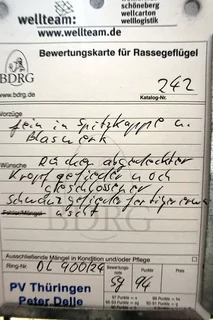 wellteam: schöneberg
wellcarton
welllogistik
www.wellteam.de
Bewertungskarte für Rassegeflügel
BDRG
www.bdrg.de
242
Katalog-Nr.
Vorzüge
fein in Spitzkappe u.
Blaswerk
Wünsche
Kropfgefieder noch
geschlossener
Schwanzgefieder fertiger
Ausschließende Mängel in Kondition und/oder Pflege
Ring-Nr. DL 900/24
Bewertungs-
note
Sg 94
Preis
PV Thüringen
Peter Delle